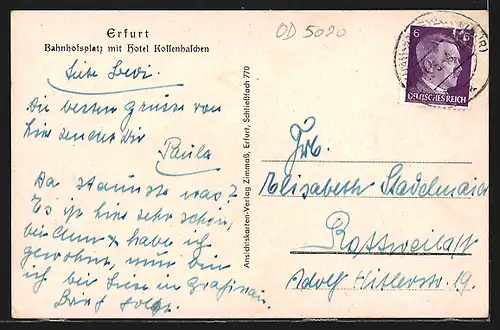 Erfurt
Bahnhofsplatz mit Hotel Kossenhaschen
OD 5090
Liebe Hedi.
Die besten Grüsse von
hier sendet dir
Paula
Da staunste was?
Es ist hier sehr schön,
bei Ann & habe ich
gewohnt, nun bin
ich bei Liese in
Brief folgt.
Ansichtskarten-Verlag Zimmaß, Erfurt, Schließfach 770
6 6
DEUTSCHES REICH
Frl.
Elisabeth Stadelmaier
Rottweil a/N
Adolf Hitlerstr. 19.